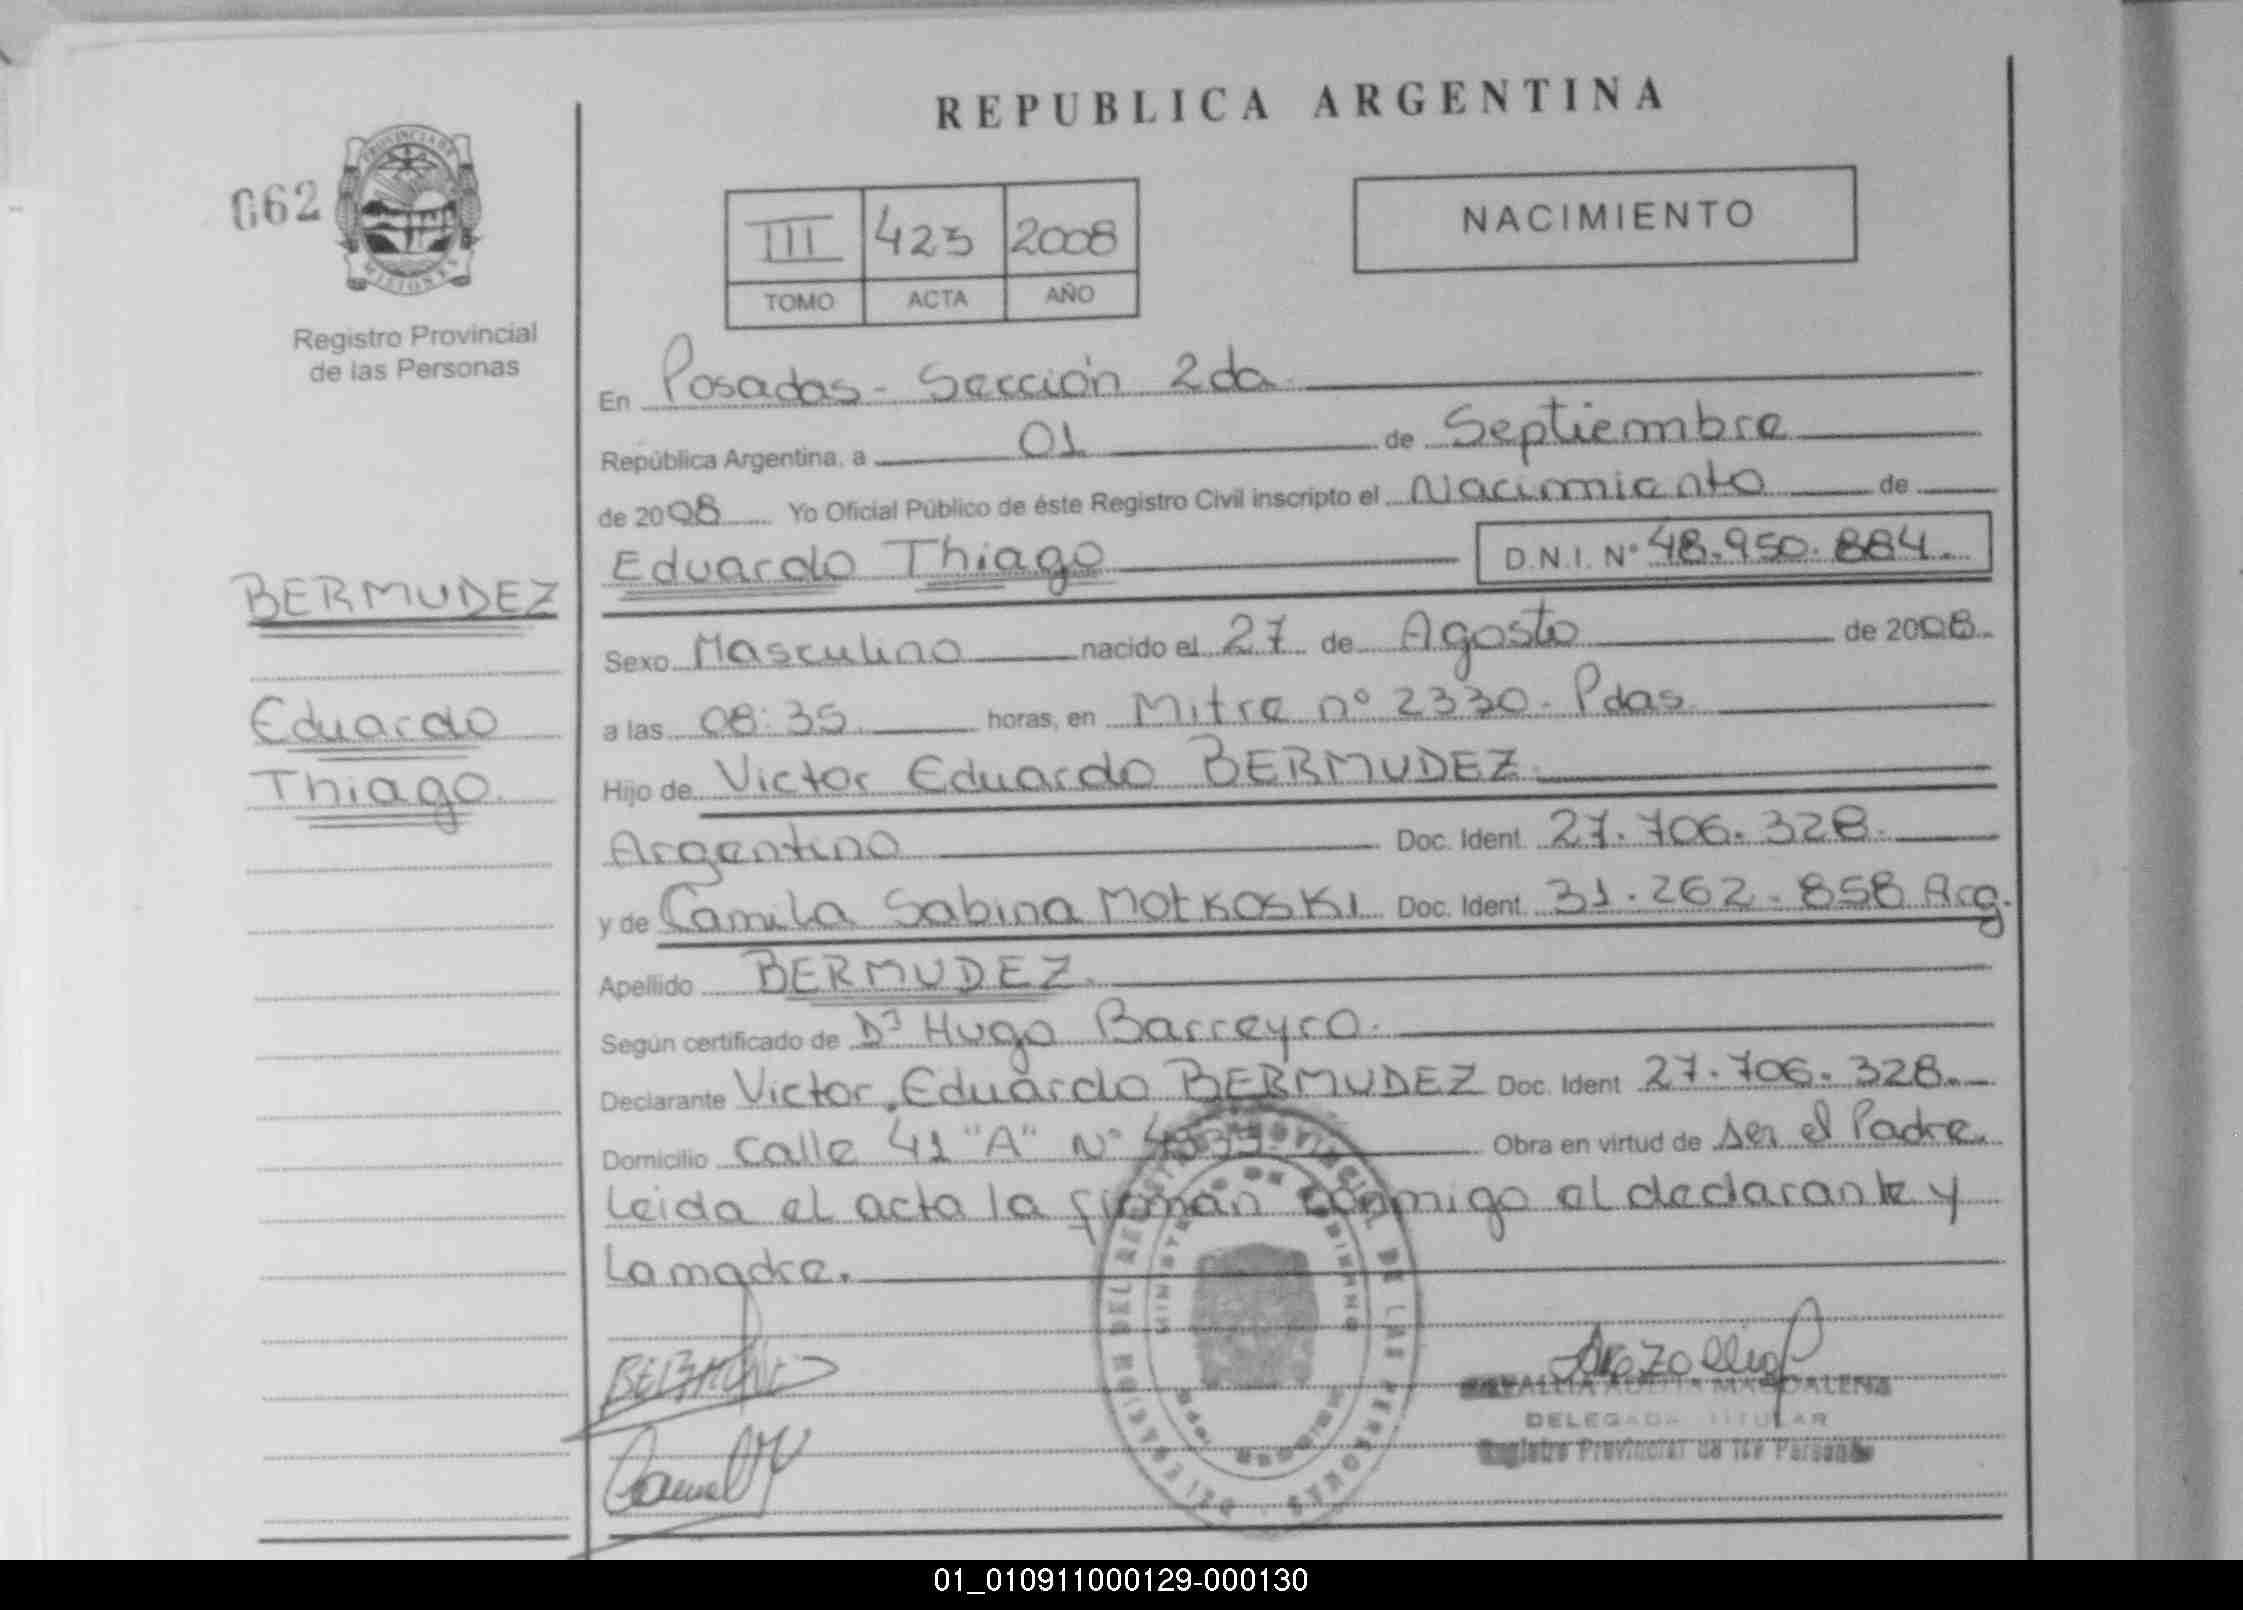 REPUBLICA ARGENTINA
062
PROVINCIA DE
MISIONES
Registro Provincial
de las Personas
III 423 2008
TOMO ACTA AÑO
NACIMIENTO
En Posadas - Sección 2da
República Argentina, a 01 de Septiembre
de 2008 Yo Oficial Público de éste Registro Civil inscripto el Nacimiento de
Eduardo Thiago D.N.I. Nº 48.950.884.
BERMUDEZ
Eduardo
Thiago
Sexo Masculino nacido el 27 de Agosto de 2008
a las 08:35 horas, en Mitre nº 2330 - Pdas
Hijo de Victor Eduardo BERMUDEZ
Argentino Doc. Ident. 27.706.328.
y de Camila Sabina MOTKOSKI Doc. Ident. 31.262.858 Arg.
Apellido BERMUDEZ.
Según certificado de Dr Hugo Barreyro.
Declarante Victor Eduardo BERMUDEZ Doc. Ident 27.706.328.
Domicilio Calle 41 "A" Nº Obra en virtud de ser el Padre.
Leida el acta la firman conmigo el declarante y
La madre.
MAGDALENA
DELEGADA TITULAR
Registro Provincial de las Personas
01_010911000129-000130